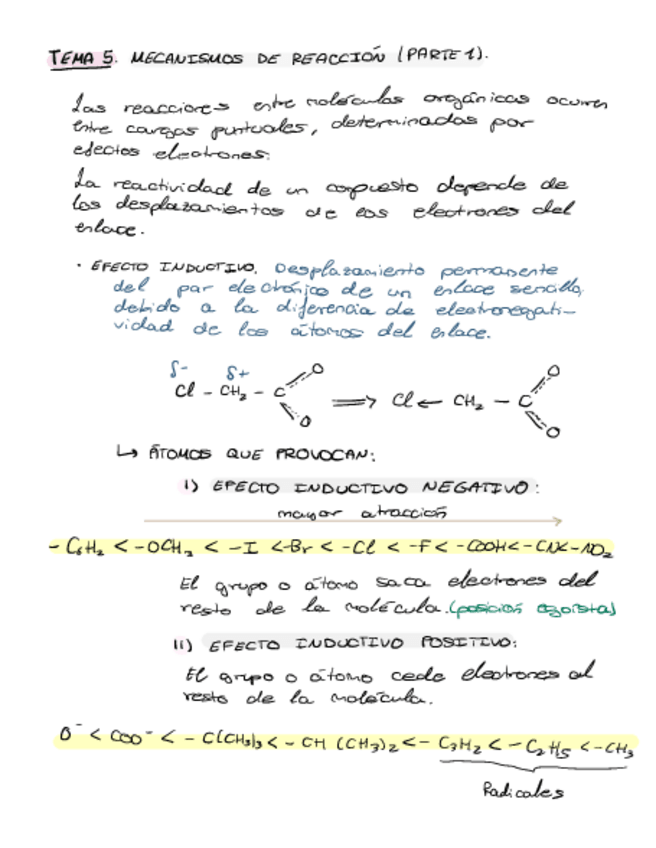 TEMA 5. MECANISMOS DE REACCIÓN (PARTE 1).
Las reacciones entre moléculas orgánicas ocurren
entre cargas puntuales, determinadas por
efectos electrones.
La reactividad de un compuesto depende de
los desplazamientos de los electrones del
enlace.
· EFECTO INDUCTIVO. Desplazamiento permanente
del par electrónico de un enlace sencillo,
debido a la diferencia de electronegati-
vidad de los átomos del enlace.
δ- δ+
Cl - CH₂ - C O O ⇒ Cl ← CH₂ - C O O
↳ ÁTOMOS QUE PROVOCAN:
I) EFECTO INDUCTIVO NEGATIVO:
mayor atracción
- C₆H₂ < -OCH₂ < -I < -Br < -Cl < -F < -COOH < -CN < -NO₂
El grupo o átomo saca electrones del
resto de la molécula. (posición egoísta)
II) EFECTO INDUCTIVO POSITIVO:
El grupo o átomo cede electrones al
resto de la molécula.
O⁻ < COO⁻ < - C(CH₃)₃ < - CH (CH₃)₂ < - C₃H₂ < - C₂H₅ < -CH₃
Radicales